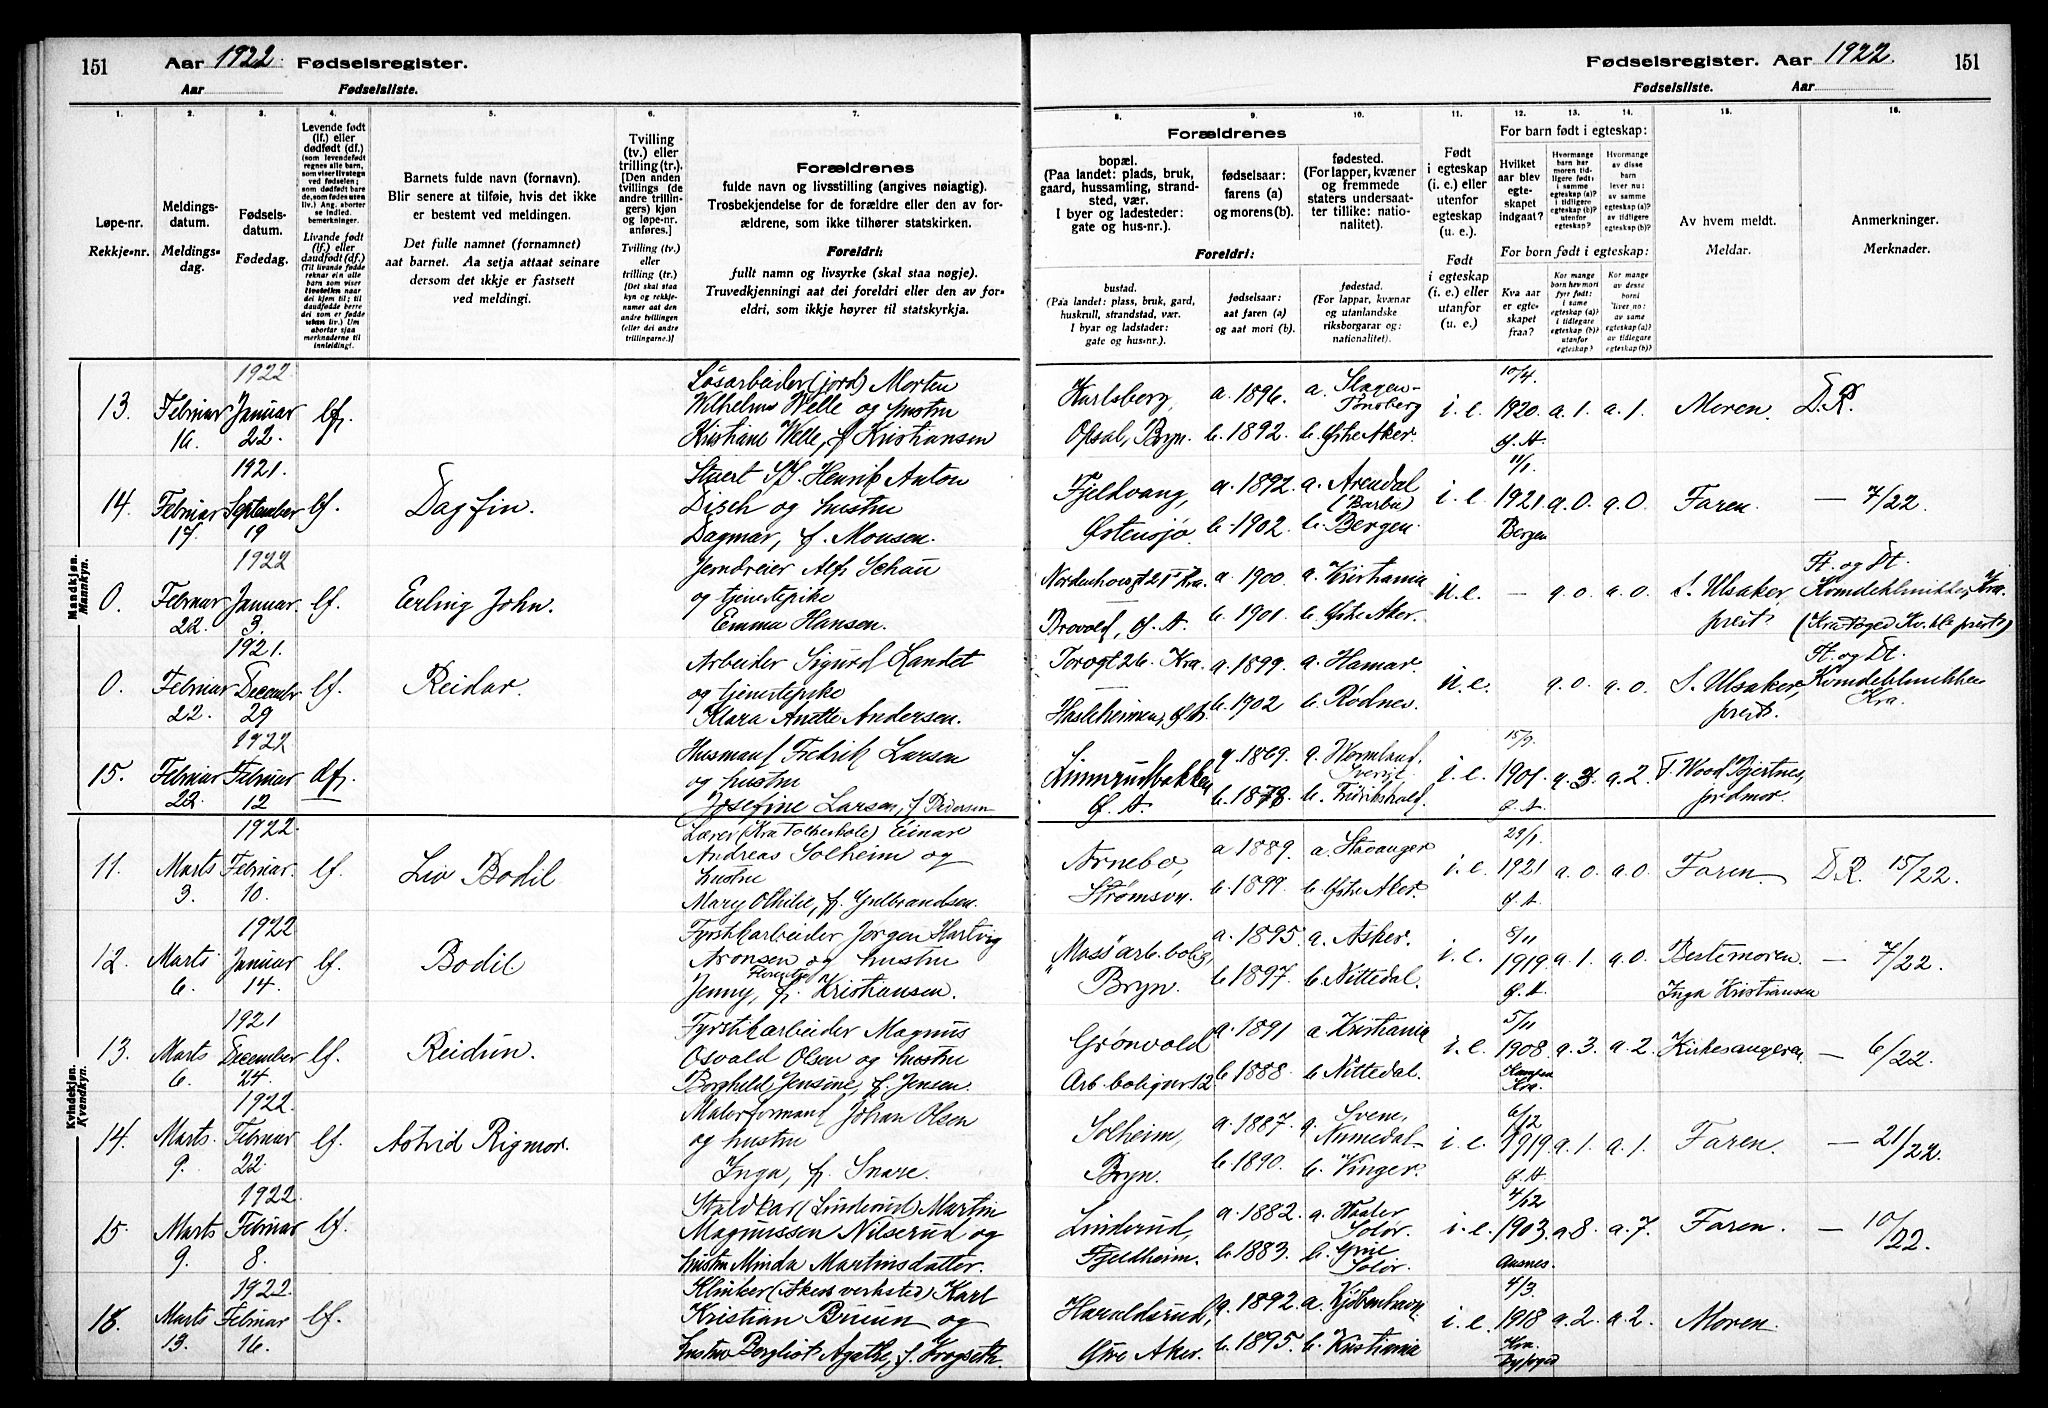 151 Aar 1922. Fødselsregister.
Aar Fødselsliste.
Fødselsregister. Aar 1922. 151
Fødselsliste. Aar
1. 2. 3. 4. 5. 6. 7.
8. 9. 10. 11. 12. 13. 14. 15. 16.
Løpe-nr.
Rekkje-nr.
Meldings-
datum.
Meldings-
dag.
Fødsels-
datum.
Fødedag.
Levende født
(lf.) eller
dødfødt (df.)
Livande fødd
(lf.) eller
daudfødd (df.)
Barnets fulde navn (fornavn).
Blir senere at tilføie, hvis det ikke
er bestemt ved meldingen.
Det fulle namnet (fornamnet)
aat barnet. Aa setja attaat seinare
dersom det ikkje er fastsett
ved meldingi.
Tvilling
(tv.) eller
trilling (tr.)
[Den anden
tvillings (de
andre trillin-
gers) kjøn
og løpe-nr.
anføres.]
Tvilling (tv.)
eller
trilling (tr.)
[Det skal staa
kyn og rekkje-
numer aat den
andre tvillingen
(eller dei andre
trillingarne.)]
Forældrenes
fulde navn og livsstilling (angives nøiagtig).
Trosbekjendelse for de forældre eller den av for-
ældrene, som ikke tilhører statskirken.
Foreldri:
fullt namn og livsyrke (skal staa nøgje).
Truvedkjenningi aat dei foreldri eller den av for-
eldri, som ikkje høyrer til statskyrkja.
Forældrenes
bopæl.
(Paa landet: plads, bruk,
gaard, hussamling, strand-
sted, vær.
I byer og ladesteder:
gate og hus-nr.).
Foreldri:
bustad.
(Paa landet: plass, bruk, gard,
huskrull, strandstad, vær.
I byar og ladstader:
gate og hus-nr.).
fødselsaar:
farens (a)
og morens (b).
fødselsaar:
aat faren (a)
og aat mori (b).
fødested.
(For lapper, kvæner
og fremmede
staters undersaat-
ter tillike: natio-
nalitet).
fødestad.
(For lappar, kvænar
og utanlandske
riksborgarar og:
nationalitet).
Født
i egteskap
(i. e.) eller
utenfor
egteskap
(u. e.).
Født
i egteskap
(i. e.) eller
utanfor
(u. e.).
For barn født i egteskap:
Hvilket
aar blev
egte-
skapet
indgaat?
For born født i egteskap:
Kva aar
er egte-
skapet
fraa?
Av hvem meldt.
Meldar.
Anmerkninger.
Merknader.
Mandkjøn.
Mannkyn.
13. Februar 16. 1922 Januar 22. lf. Løsarbeider (jord) Morten
Wilhelms Welle og hustru
Kristiane Welle, f. Kristiansen
Karlsberg, Opsal, Bryn. a. 1896. b. 1892. a. Slagen-Tønsberg b. Østre Aker. i. e. 10/4. 1920. Ø. A. a. 1. a. 1. Moren. D.R.
14. Februar 17. 1921. September 19 lf. Dagfin. Henrik Anton
Disch og hustru
Dagmar, f. Monsen.
Fjeldvang, Østensjø. a. 1892. b. 1902. a. Arendal (Barbu) b. Bergen. i. e. 11/1. 1921. Bergen a. 0. a. 0. Faren. — 7/22.
0. Februar 22. 1922 Januar 3. lf. Eerling John. Jerndreier Alf Schau
og tjenestepike
Emma Hansen.
21 Kra. Brovold, Ø. A. a. 1900. b. 1901. a. Kristiania b. Østre Aker. u. e. — a. 0. a. 0. S. Ulsaker, prest. H. og Dt. Kvindeklinikken, Kra.
0. Februar 22. 1921. December 29 lf. Reidar. Arbeider Sigurd Landet
og tjenestepike
Klara Anette Andersen.
Torvgt 26. Kra. a. 1899. b. 1902 a. Hamar. b. Rødnes. u. e. a. 0. a. 0. S. Ulsaker, prest. H. og Dt. Kvindeklinikken Kra.
15. Februar 22. 1922 Februar 12 df. Husmand Fredrik Larsen
og hustru
Josefine Larsen, f. Pedersen
Ø. A. a. 1869. b. 1878. a. Vermland, Sverige. b. Fredrikshald. i. e. 15/9. 1901. Ø. A. a. 3. a. 2. T. Wood Bjertnes, jordmor.
Kvindekjøn.
Kvendkyn.
11. Marts 3. 1922. Februar 10. lf. Liv Bodil Lærer (Kra Folkeskole) Einar
Andreas Solheim og
hustru
Mary Othilie, f. Gulbrandsen.
Arnebo, Strømsvn. a 1889. b. 1899. a. Stavanger b. Østre Aker. i. e. 29/1. 1921 Ø. A. a. 0. a. 0. Faren. D.R. 15/22.
12. Marts 6. 1922 Januar 14. lf. Bodil Fyrstikarbeider Jørgen Hartvig
Aronsen og hustru
Jenny, f. Kristiansen.
"Mass" arb. bolig, Bryn. a. 1895. b. 1897. a. Asker. b. Nittedal. i. e. 8/11 1919. Ø. A. a. 1. a. 0. Bestemoren. Inga Kristiansen — 7/22.
13. Marts 6. 1921 December 24. lf. Reidun. Fyrstikarbeider Magnus
Osvald Olsen og hustru
Borghild Jensine, f. Jensen.
Grønvold Arb. bolig nr 12 a. 1891 b. 1888. a. Kristiania b. Nittedal. i. e. 5/11 1908. Kampen Kra. a. 3. a. 2. Kirkesangeren — 6/22.
14. Marts. 9. 1922. Februar 22. lf. Astrid Rigmor. Malerformand Johan Olsen
og hustru
Inga, f. Snare.
Solheim, Bryn. a. 1887. b. 1890. a. Svene, Numedal b. Vinger. i. e. 6/12 1919 Ø. A. a. 1. a. 1. Faren. — 21/22.
15. Marts 9. 1922. Februar 8. lf. Staldkar (Linderud) Martin
Magnussen Nilserud og
hustru Minda Martinsdatter.
Linderud, Fjeldheim. a. 1882. b. 1883. a. Haaler Solør. b. Grue Solør. i. e. 4/12 1903. Aasnes. a 8. a. 7. Faren. — 10/22.
16. Marts 13. 1922. Februar 16. lf. Klinker (Akers verksted) Karl
Kristian Bruun og
hustru Bergliot Agathe, f. Krogseth.
Haraldsrud, Øvre Aker. a. 1892. b. 1895. a. Kjøbenhavn. b. Kristiania i. e. 4/3. 1918 Kra. Byfoged a. 2. a. 2. Moren.